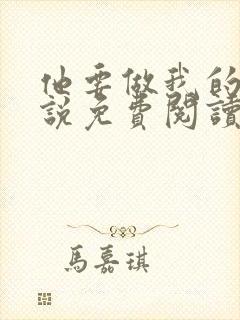 他要做我的
說免費閱讀
馬嘉琪